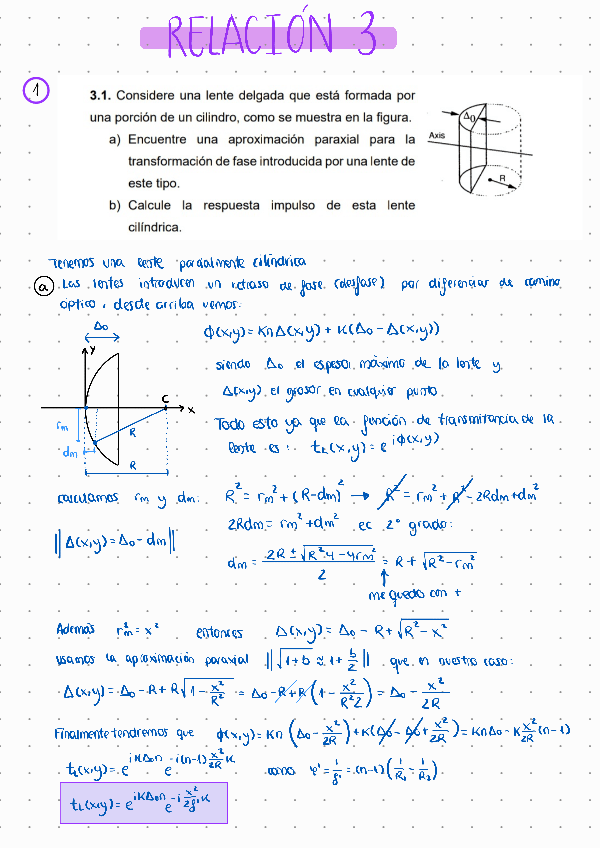 RELACIÓN 3
1
3.1. Considere una lente delgada que está formada por
una porción de un cilindro, como se muestra en la figura.
a) Encuentre una aproximación paraxial para la
transformación de fase introducida por una lente de
este tipo.
b) Calcule la respuesta impulso de esta lente
cilíndrica.
Δ0
Axis
R
Tenemos una lente parcialmente cilíndrica
a Las lentes introducen un retraso de fase (desfase) por diferencias de camino
óptico, desde arriba vemos:
Δ0
y
C
x
rm
dm
R
R
ϕ(x,y) = KnΔ(x,y) + K(Δ0 - Δ(x,y))
siendo Δ0 el espesor máximo de la lente y
Δ(x,y) el grosor en cualquier punto.
Todo esto ya que la función de transmitancia de la
lente es: tL(x,y) = e^{iϕ(x,y)}
calculamos rm y dm: R² = rm² + (R-dm)² → R² = rm² + R² - 2Rdm + dm²
||Δ(x,y) = Δ0 - dm||
2Rdm = rm² + dm² ec 2º grado:
dm = (2R ± √(R²4 - 4rm²))/2 = R + √(R² - rm²)
me quedo con +
Además rm² = x² entonces Δ(x,y) = Δ0 - R + √(R² - x²)
usamos la aproximación paraxial ||√(1+b) ≈ 1 + b/2|| que en nuestro caso:
Δ(x,y) = Δ0 - R + R√(1 - x²/R²) = Δ0 - R + R(1 - x²/R²2) = Δ0 - x²/2R
Finalmente tendremos que ϕ(x,y) = Kn(Δ0 - x²/2R) + K(Δ0 - Δ0 + x²/2R) = KnΔ0 - K x²/2R (n-1)
tL(x,y) = e^{iKΔ0n} e^{-i(n-1) x²/2R K} como φ' = 1/f' = (n-1)(1/R1 - 1/R2)
tL(x,y) = e^{iKΔ0n} e^{-i x²/2f' K}